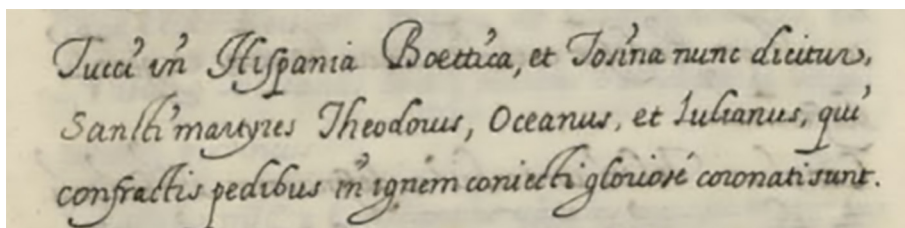 Tucci in Hispania Boettica, et Tosina nunc dicitur,
Sancti martyres Theodorus, Oceanus, et Iulianus, qui
confractis pedibus in ignem coniecti gloriosé coronati sunt.